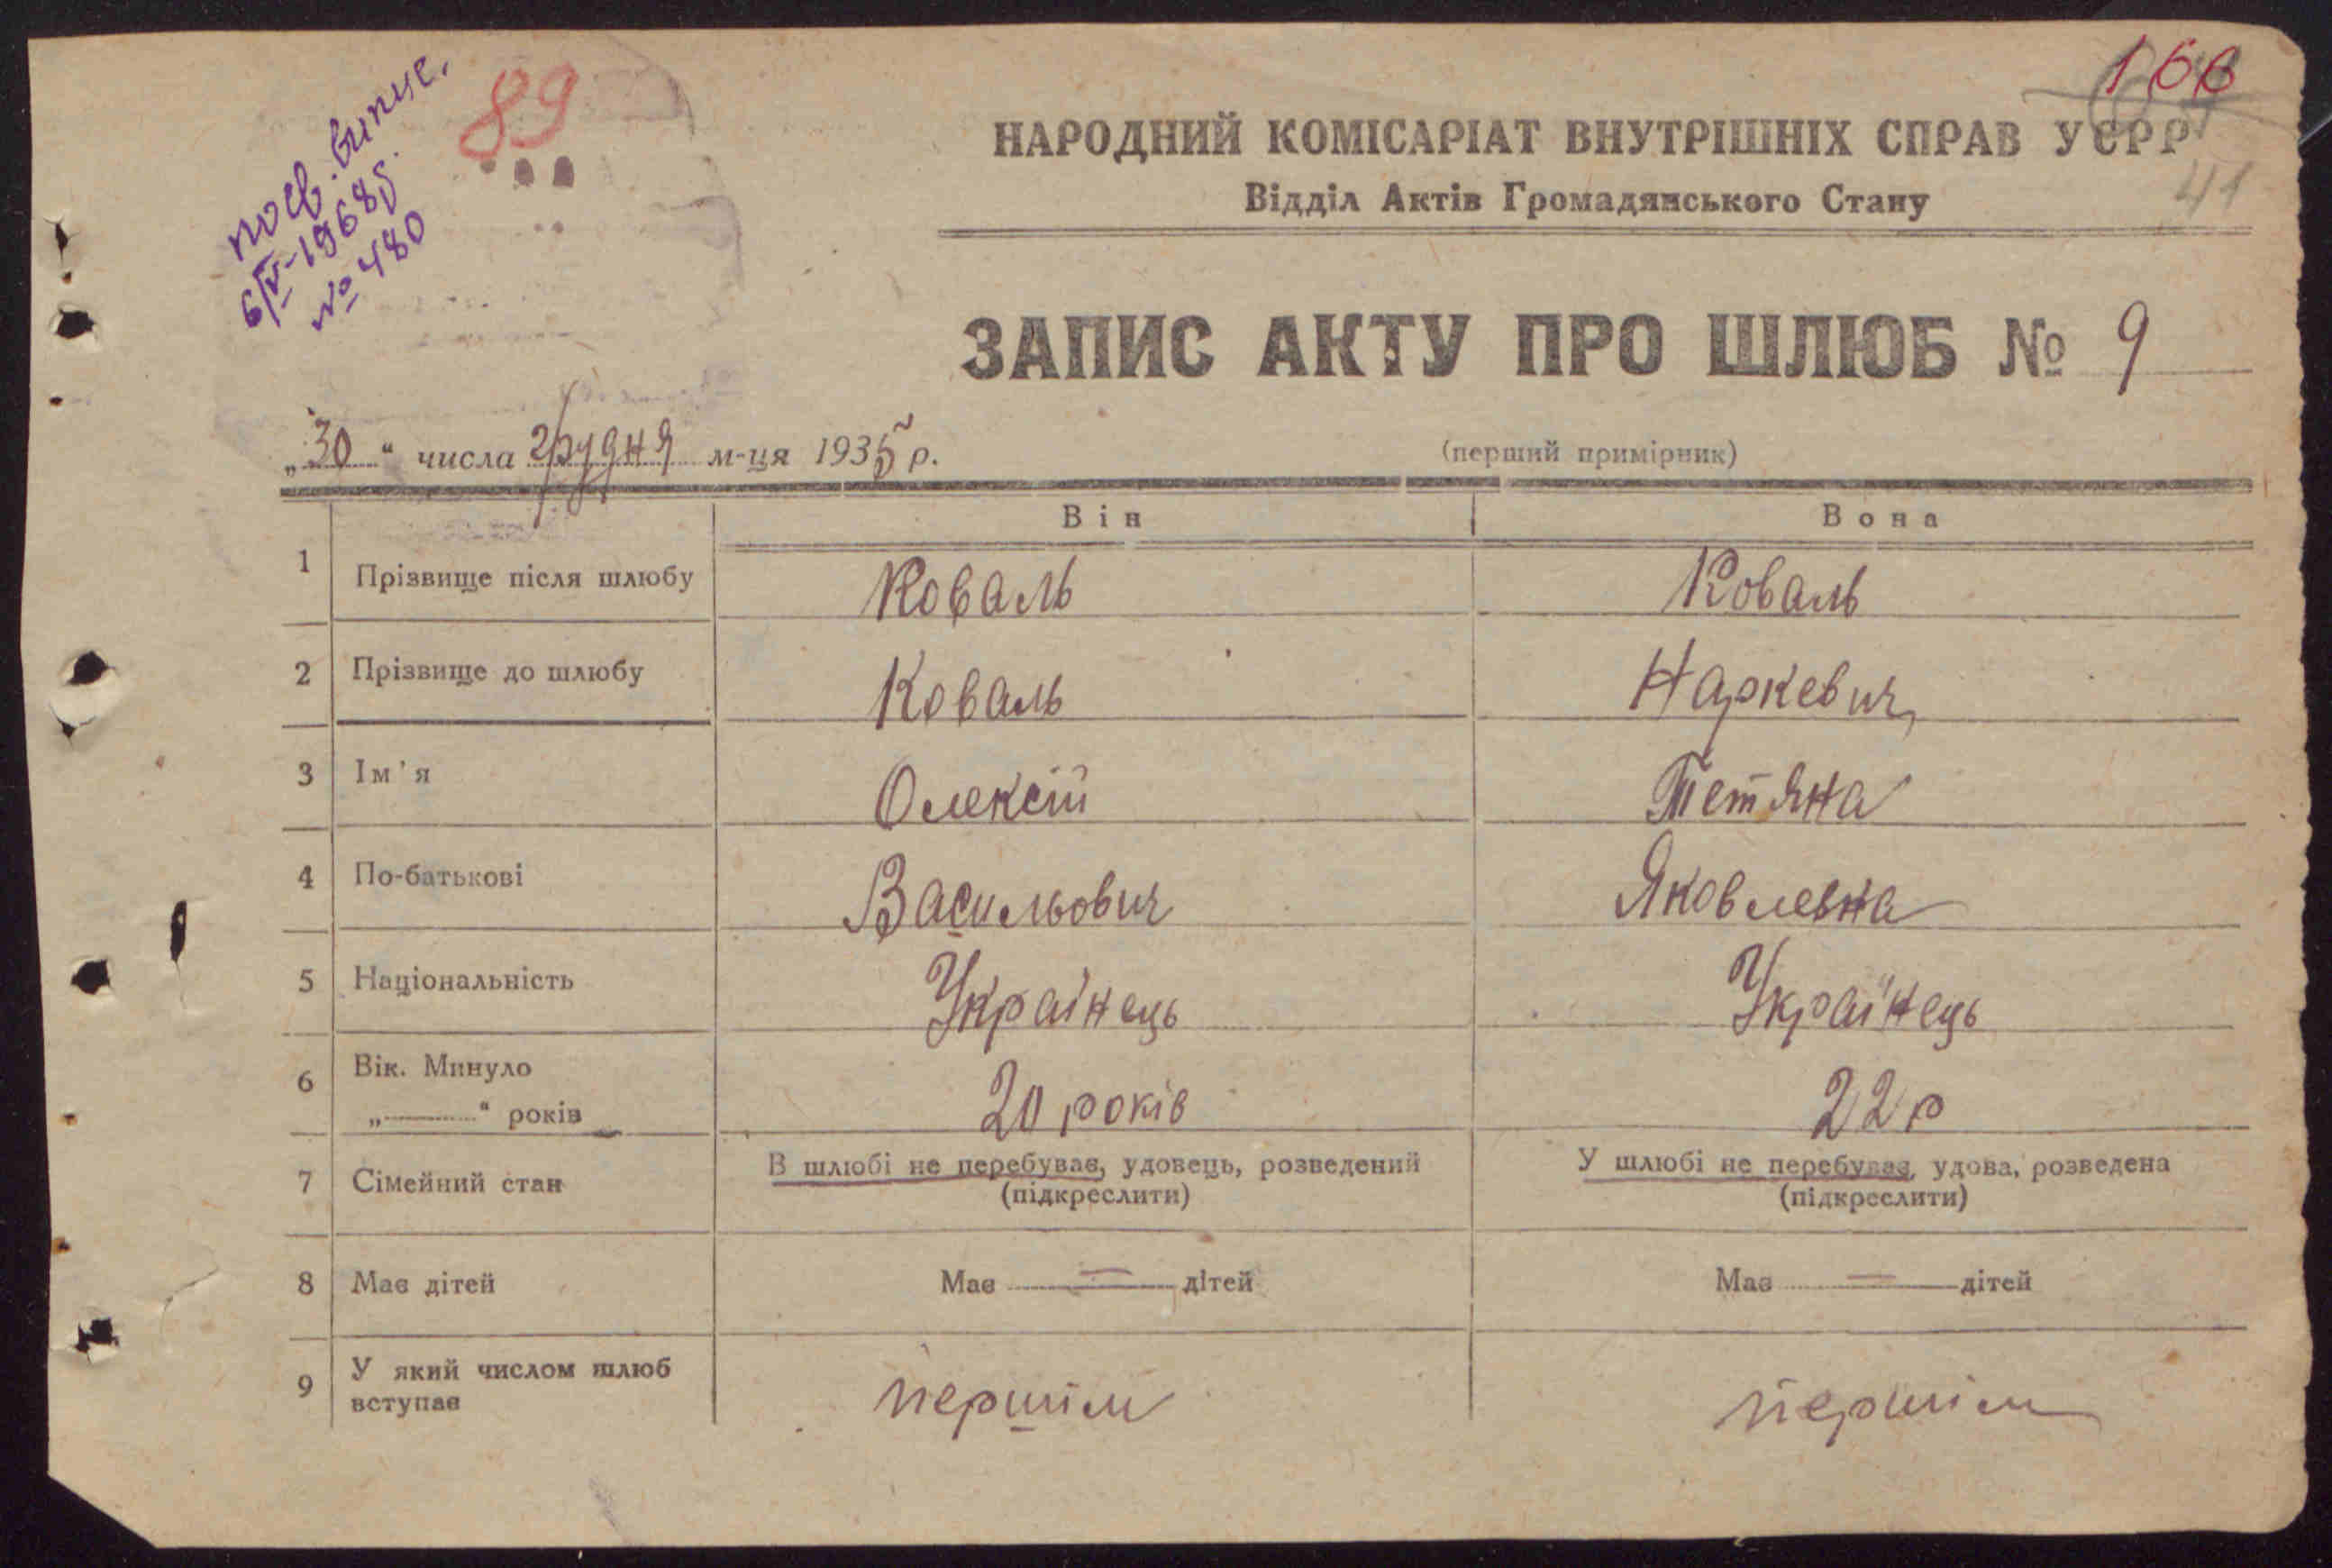 посв. випис.
6/V-1968 р.
№ 480
89
166
41
НАРОДНИЙ КОМІСАРІАТ ВНУТРІШНІХ СПРАВ УСРР
Відділ Актів Громадянського Стану
ЗАПИС АКТУ ПРО ШЛЮБ № 9
„30“ числа грудня м-ця 1935 р.
(перший примірник)
Він Вона
1 Прізвище після шлюбу Коваль Коваль
2 Прізвище до шлюбу Коваль Наркевич
3 Ім'я Олексій Тетяна
4 По-батькові Васильович Яковлевна
5 Національність Українець Українець
6 Вік. Минуло „ “ років 20 років 22 р
7 Сімейний стан В шлюбі не перебував, удовець, розведений (підкреслити) У шлюбі не перебував, удова, розведена (підкреслити)
8 Має дітей Має — дітей Має — дітей
9 У який числом шлюб вступає першім першім